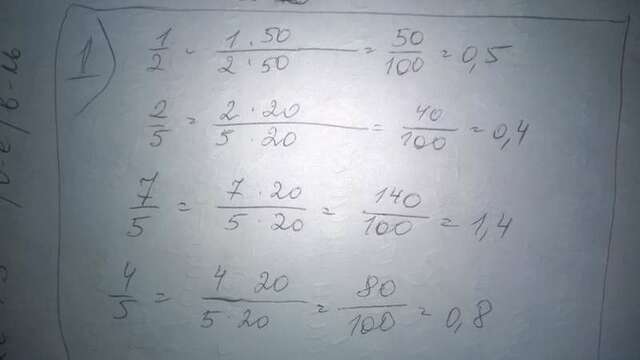 1) 1/2 - 1·50/2·50 = 50/100 = 0,5
2/5 = 2·20/5·20 = 40/100 = 0,4
7/5 = 7·20/5·20 = 140/100 = 1,4
4/5 = 4 20/5·20 = 80/100 = 0,8